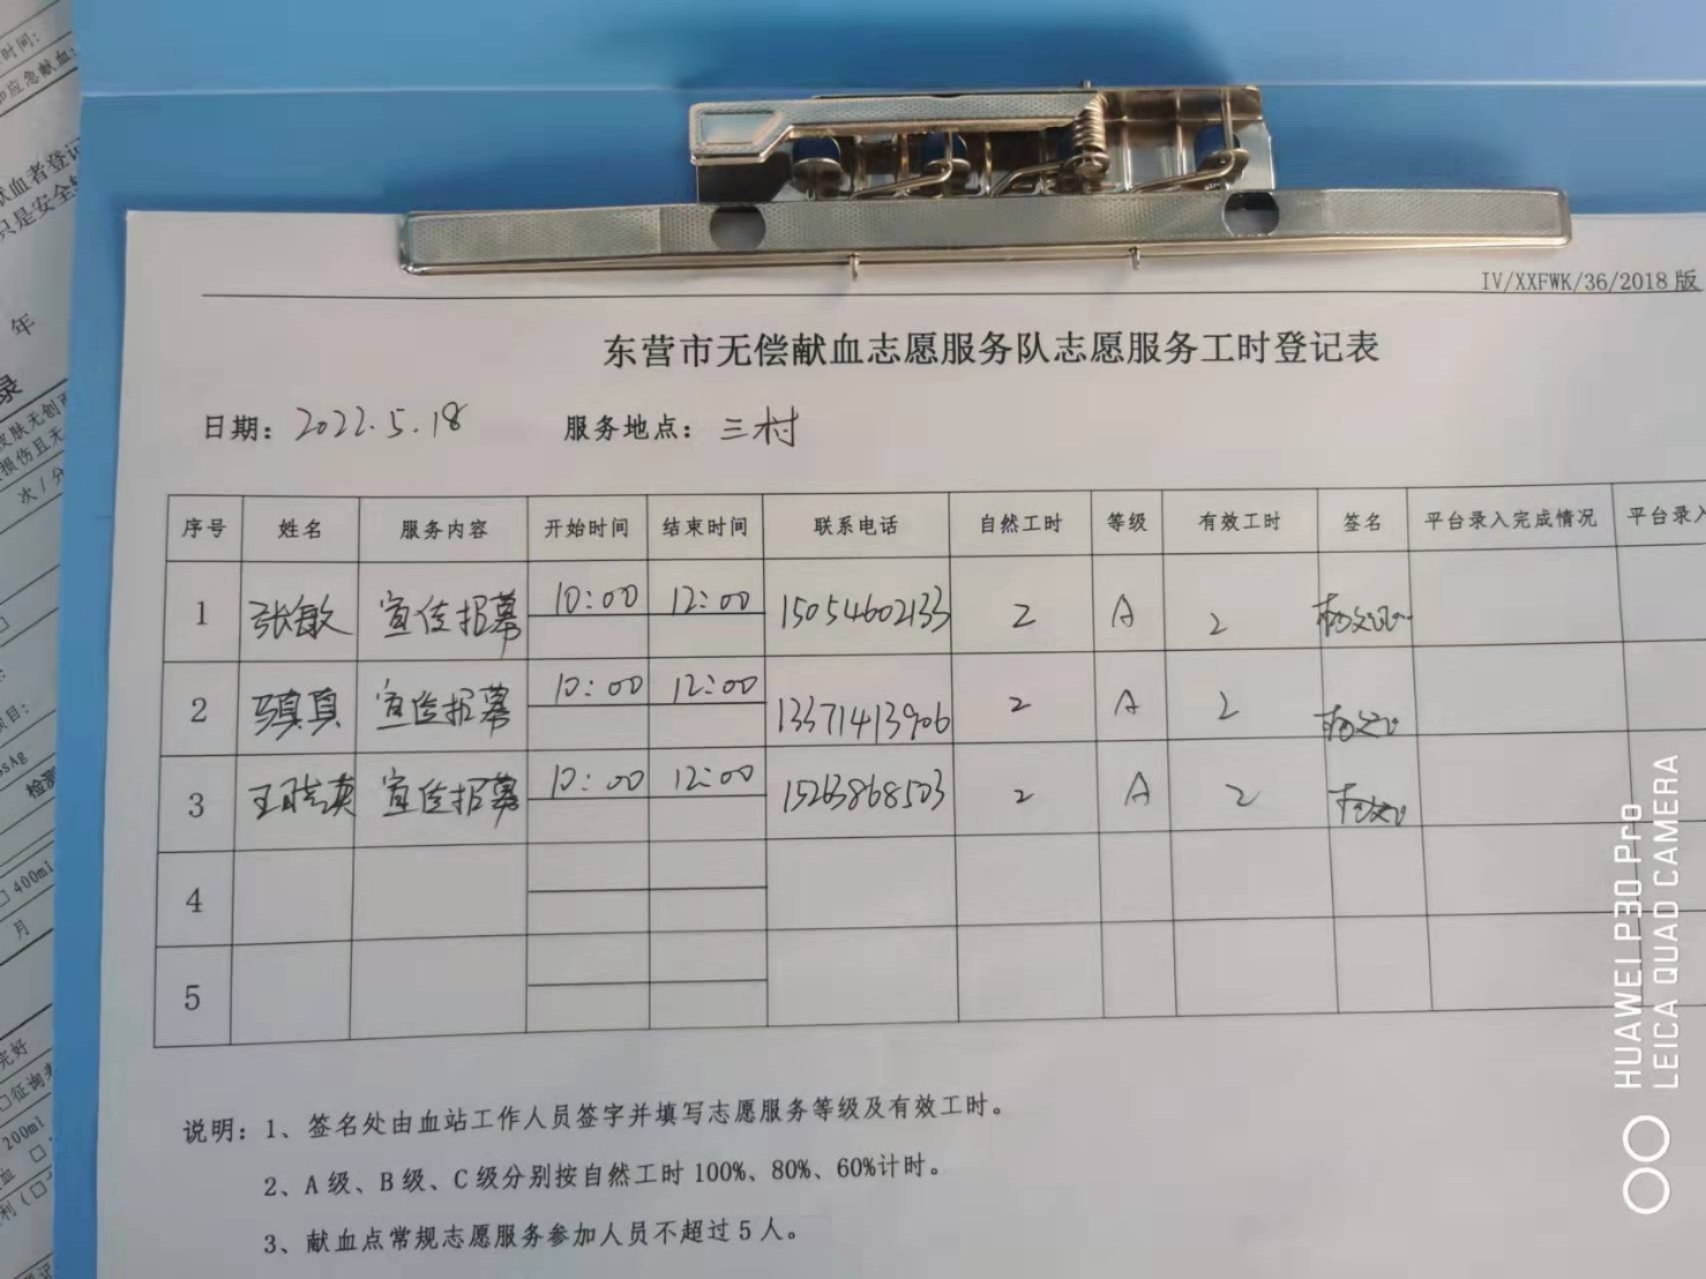 IV/XXFWK/36/2018 版
东营市无偿献血志愿服务队志愿服务工时登记表
日期: 2022.5.18 服务地点: 三村
序号 姓名 服务内容 开始时间 结束时间 联系电话 自然工时 等级 有效工时 签名 平台录入完成情况 平台录入
1 张敏 宣传招募 10:00 12:00 15054602133 2 A 2
2 真真 宣传招募 10:00 12:00 13371413906 2 A 2
3 王晓英 宣传招募 10:00 12:00 15263868503 2 A 2
4
5
说明: 1、签名处由血站工作人员签字并填写志愿服务等级及有效工时。
2、A 级、B 级、C 级分别按自然工时 100%、80%、60%计时。
3、献血点常规志愿服务参加人员不超过 5 人。
时间:
应急献血:
献血者登记
只是安全
年
录
皮肤无创
损伤且无
次/分
项目:
sAg
检测
□ 400ml
月
完好
□征询
200ml
HUAWEI P30 Pro
LEICA QUAD CAMERA